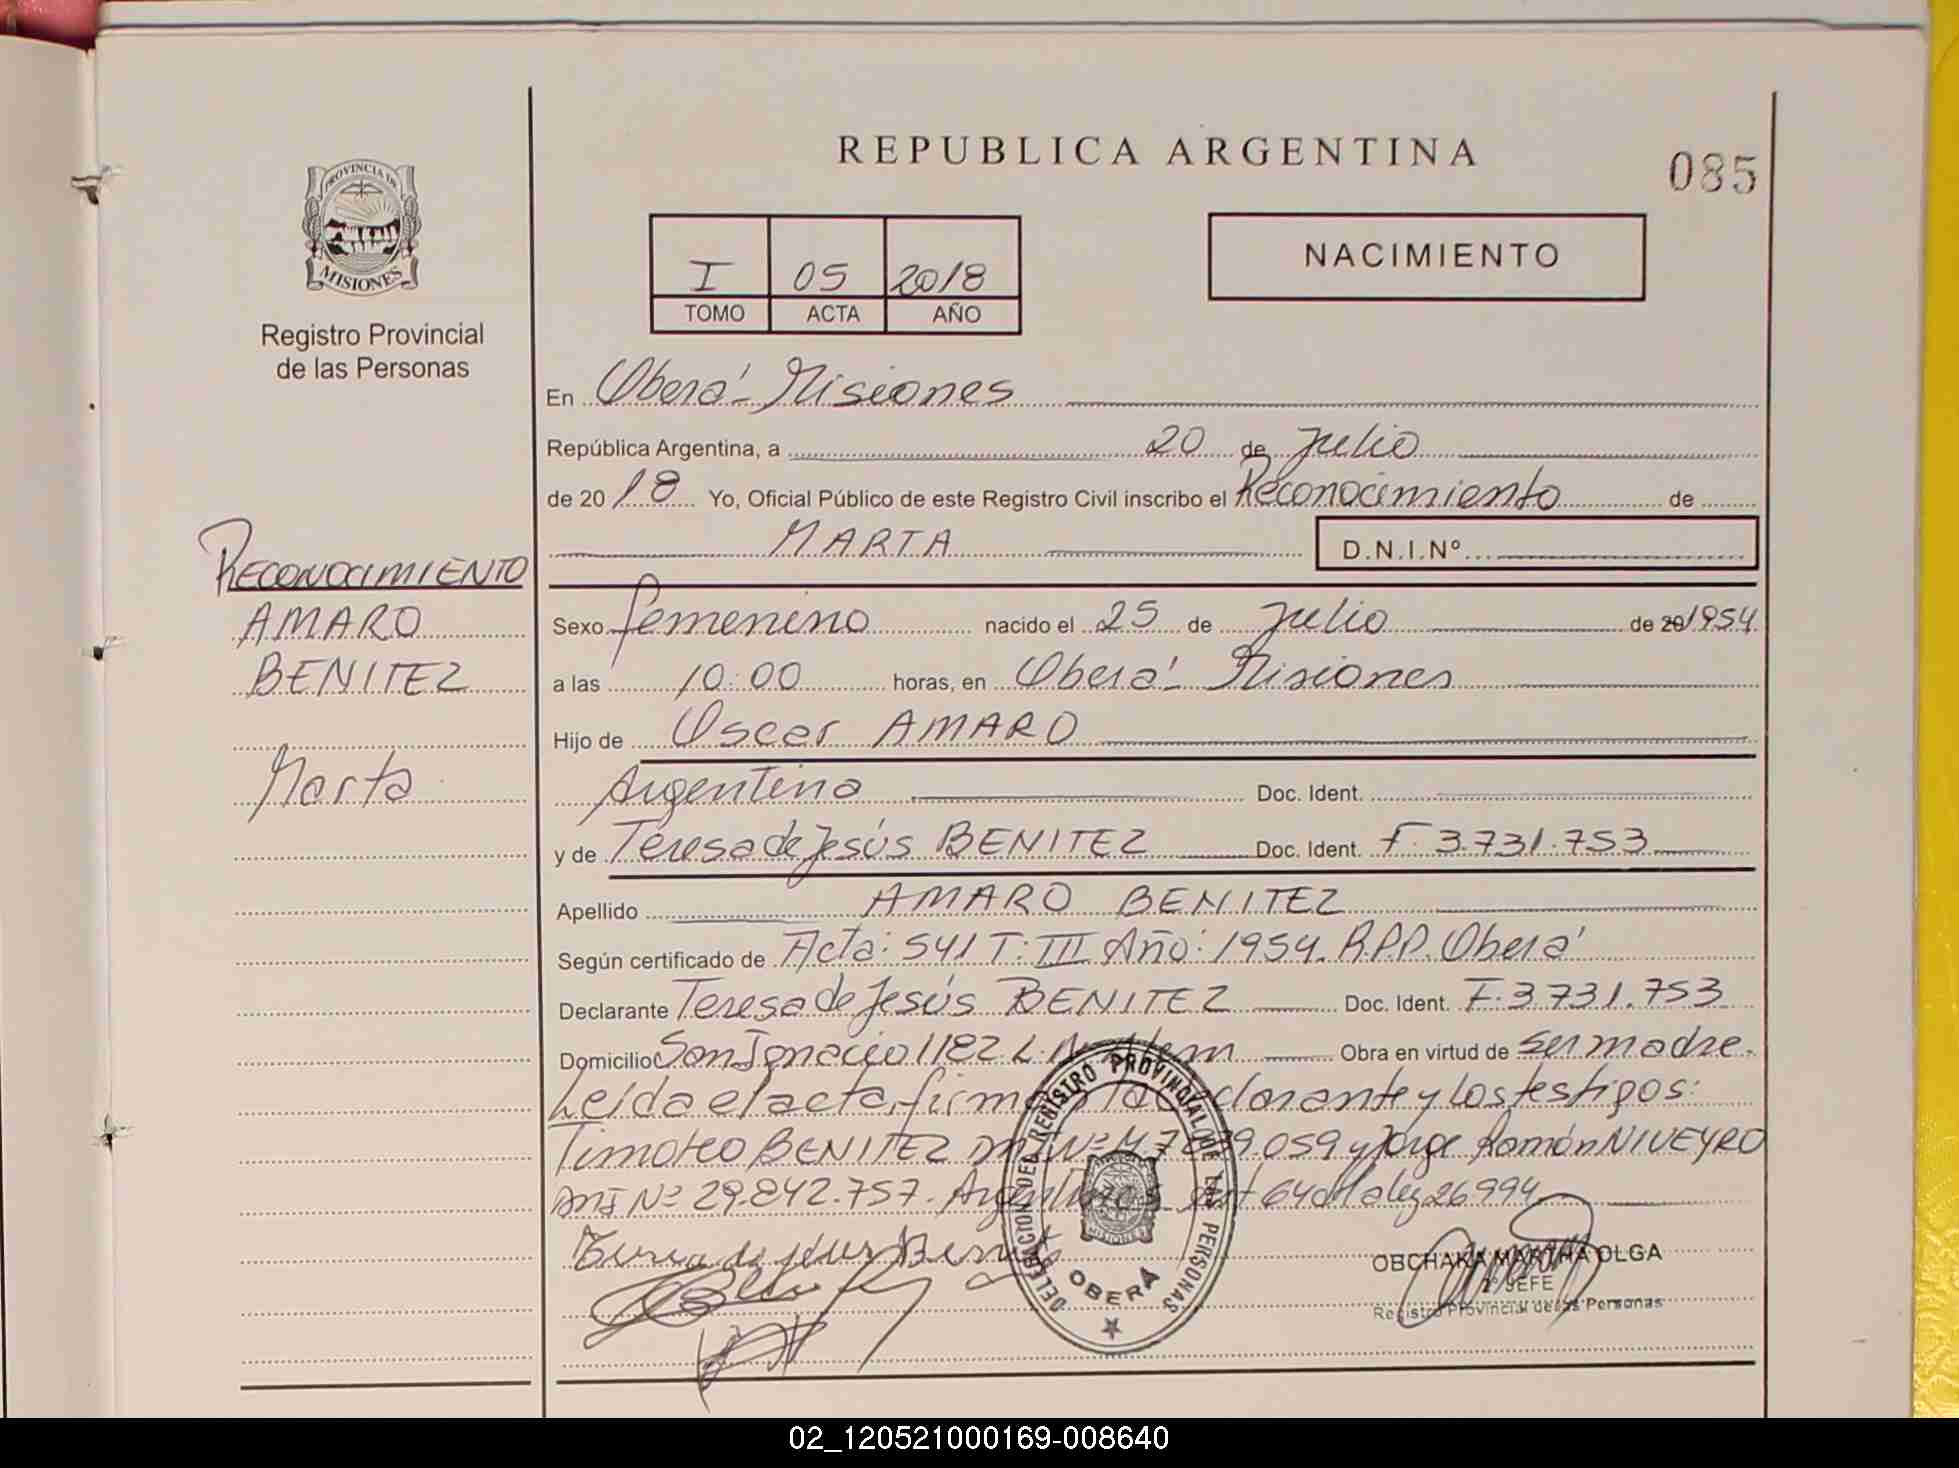 REPUBLICA ARGENTINA
085
PROVINCIA DE
MISIONES
Registro Provincial
de las Personas
I 05 2018
TOMO ACTA AÑO
NACIMIENTO
En Oberá - Misiones
República Argentina, a 20 de Julio
de 20 18 Yo, Oficial Público de este Registro Civil inscribo el Reconocimiento de
MARTA D.N.I.Nº
RECONOCIMIENTO
AMARO
BENITEZ
Marta
Sexo femenino nacido el 25 de Julio de 20 1954
a las 10:00 horas, en Oberá - Misiones
Hijo de Oscar AMARO
Argentina Doc. Ident.
y de Teresa de Jesús BENITEZ Doc. Ident. F. 3.731.753
Apellido AMARO BENITEZ
Según certificado de Acta: 541 T: III Año: 1954. R.P.P. Oberá
Declarante Teresa de Jesús BENITEZ Doc. Ident. F. 3.731.753
Domicilio San Ignacio 1182 L. N. Alem Obra en virtud de ser madre.
Leída el acta, firman la declarante y los testigos:
Timoteo BENITEZ DNI Nº M 7.879.059 y Jorge Ramón NIVEYRO
DNI Nº 29.842.757. Argentinos art 64 de la ley 26.994
Teresa de Jesus Benitez
DELEGACION DEL REGISTRO PROVINCIAL DE LAS PERSONAS
MISIONES
OBERA
OBCHAKA MARTHA OLGA
2º JEFE
Registro Provincial de las Personas
02_120521000169-008640